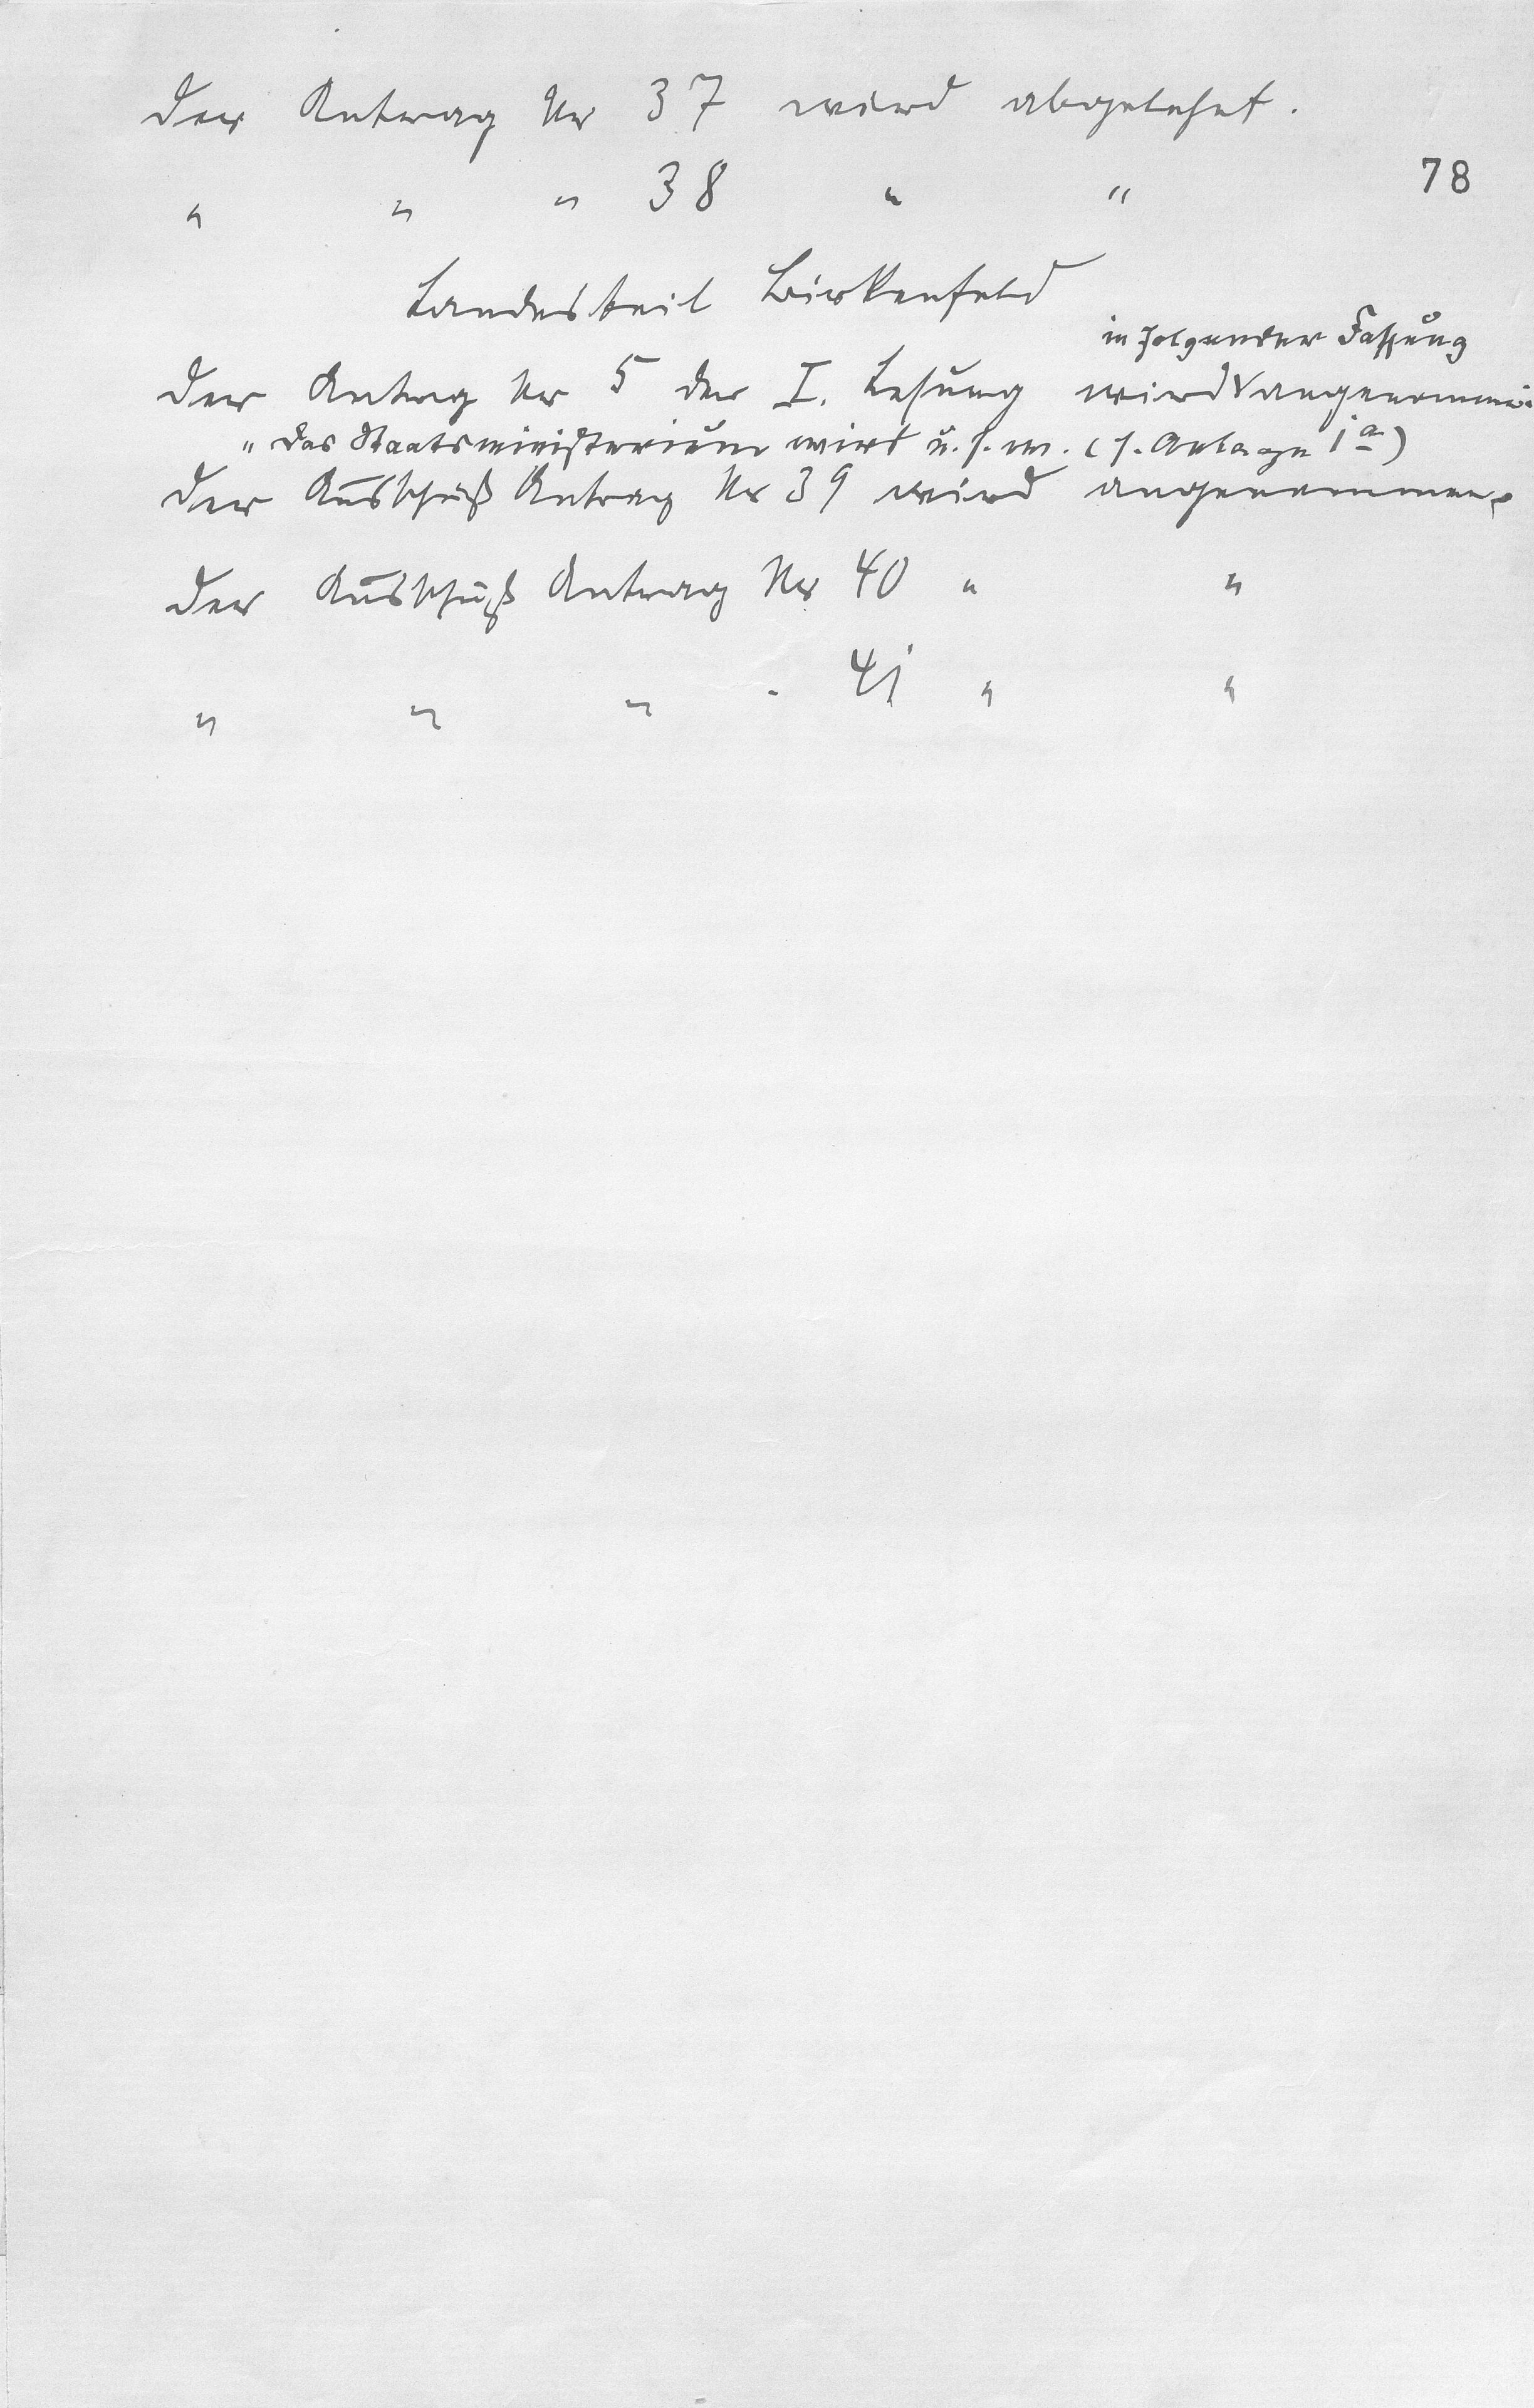 Der Antrag Nr 37 wird abgelehnt.
" " " 38 " "
78
Landesteil Birkenfeld
in folgender Fassung
Der Antrag Nr 5 der I. Lesung wird angenommen.
"Das Staatsministerium wird u.s.w. (s. Anlage 1a)
Der Ausschuß Antrag Nr 39 wird angenommen.
Der Ausschuß Antrag Nr 40 " "
" " " " 41 " "